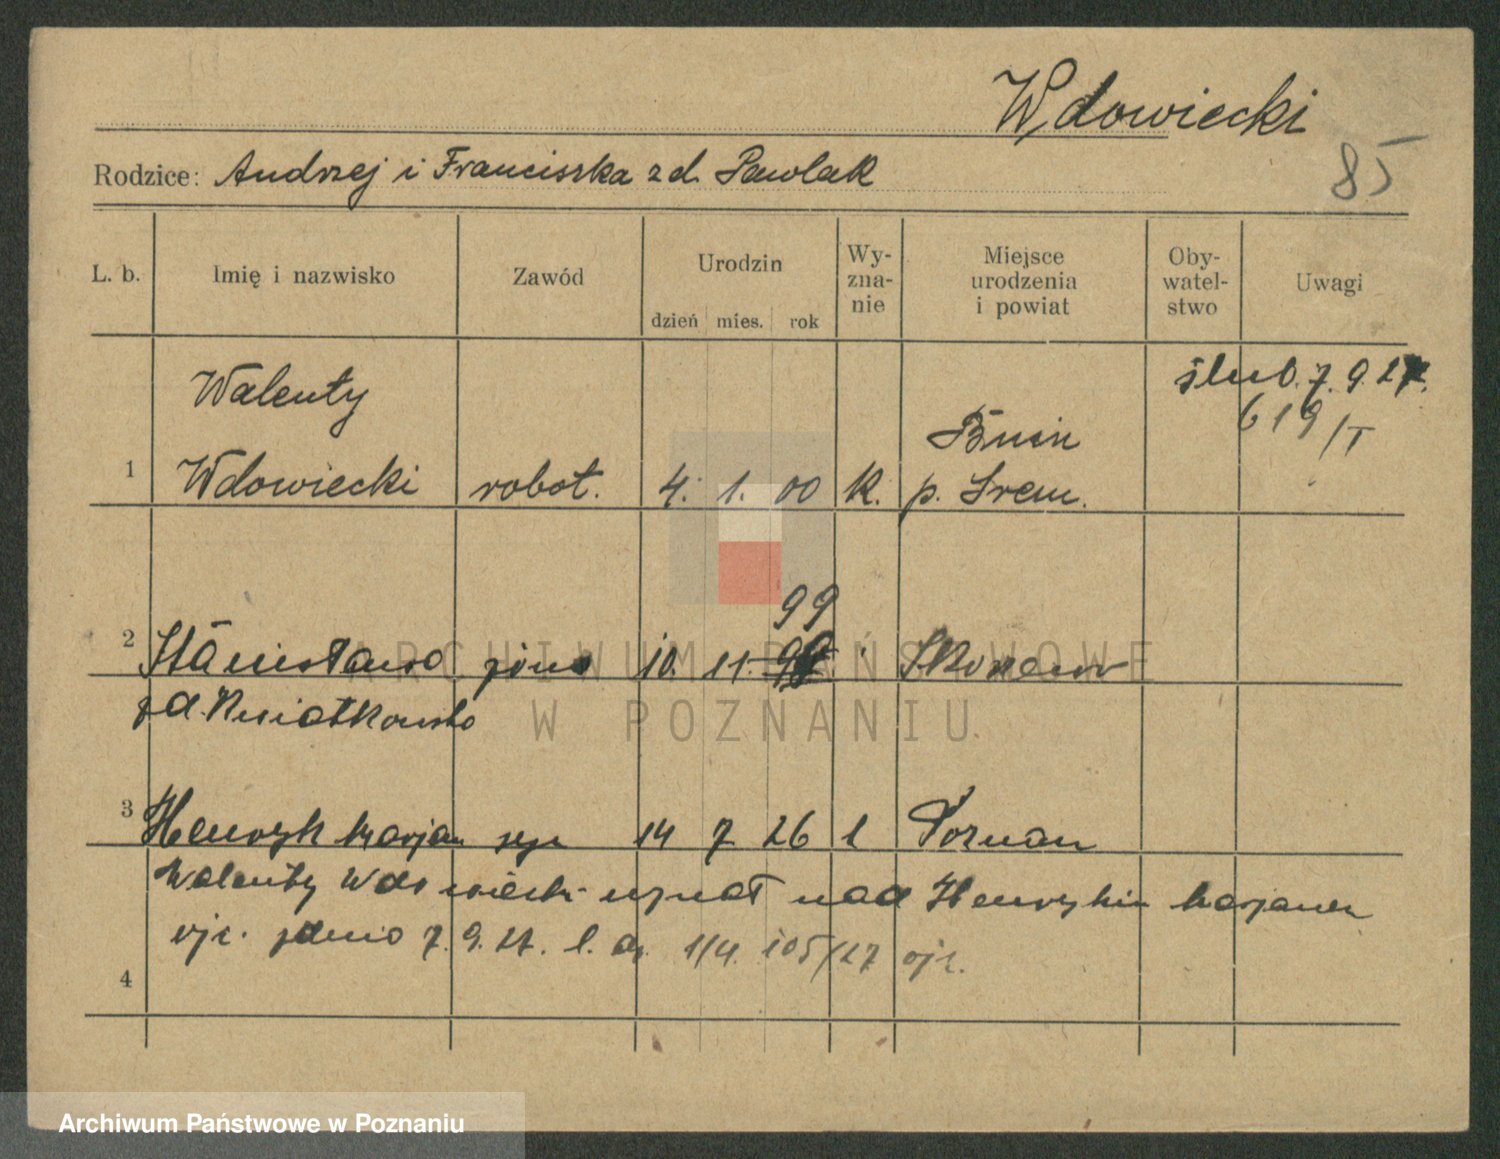 Wdowiecki
85
Rodzice: Andrzej i Franciszka zd. Pawlak
L. b. Imię i nazwisko Zawód Urodzin dzień mies. rok Wy-zna-nie Miejsce urodzenia i powiat Oby-watel-stwo Uwagi
ślub. 7. 9. 27.
619/I
1 Walenty
Wdowiecki robot. 4. 1. 00 k. Bnin
p. Śrem.
99
2 Stanisława żona 10. 11. Skorzew
zd. Kwiatkowska
3 Henryk Marjan syn 14 7 26 Poznań
Walenty Wdowiecki uznał nad Henrykiem Marjanem
ojc. dnia 7. 9. 27. l. dz. 114. 105/27 ojc.
4
ARCHIWUM PAŃSTWOWE
W POZNANIU
Archiwum Państwowe w Poznaniu